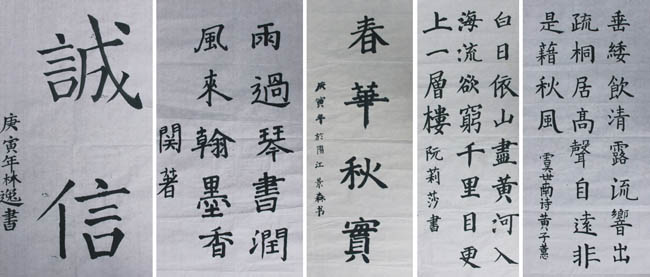 誠信
庚寅年林逸書
雨過琴書潤
風來翰墨香
関著
春華秋實
庚寅年於陽江景森书
白日依山盡黃河入
海流欲窮千里目更
上一層樓 阮莉莎書
垂緌飲清露流響出
疏桐居高聲自遠非
是藉秋風
虞世南诗黄子蕙